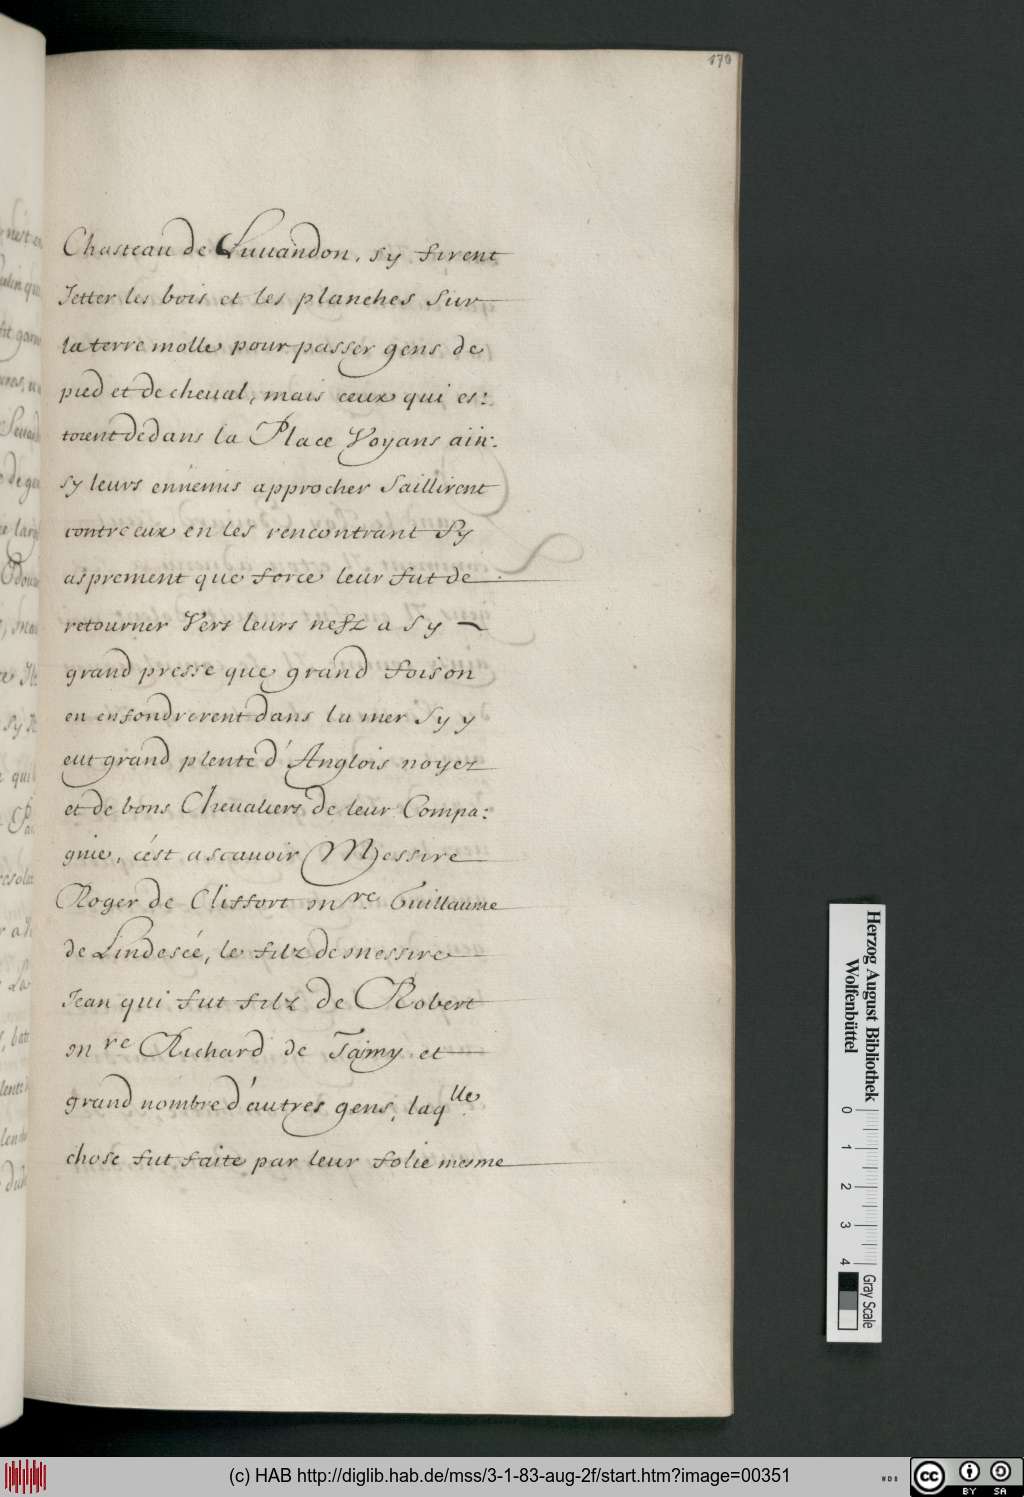 170
Chasteau de Luuandon, sy firent
Jetter les bois et les planches sur
la terre molle pour passer gens de
pied et de cheual, mais ceux qui es:
toient dedans la Place Voyans ain:
sy leurs ennemis approcher Saillirent
contre eux en les rencontrant Sy
asprement que force leur fut de
retourner Vers leurs nefz a Sy
grand presse que grand foison
en enfondrerent dans la mer Sy y
eut grand plenté d'Anglois noyez
et de bons Cheualiers de leur Compa:
gnie, c'ést ascauoir Messire
Roger de Cliffort mre Guillaume
de Lindeseé, le filz de messire
Jean qui fut filz de Robert
mre Richard de Taimy et
grand nombre d'autres gens, laqlle
chose fut faite par leur folie mesme
Herzog August Bibliothek
Wolfenbüttel
0 1 2 3 4
Gray Scale
(c) HAB http://diglib.hab.de/mss/3-1-83-aug-2f/start.htm?image=00351
cc BY SA